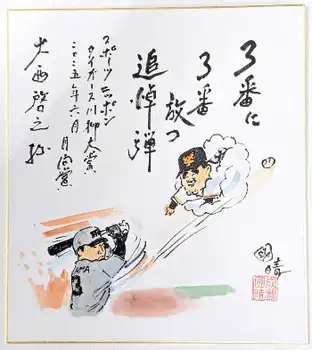 3番に
3番
放つ
追悼弾
スポーツニッポン
タイガース川柳大賞
二〇二五年六月 月間賞
大西啓之 様
国晴
AMA
3